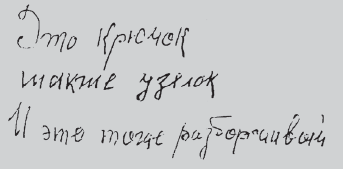 Это крючок
также узелок
И это тоже разборчивый